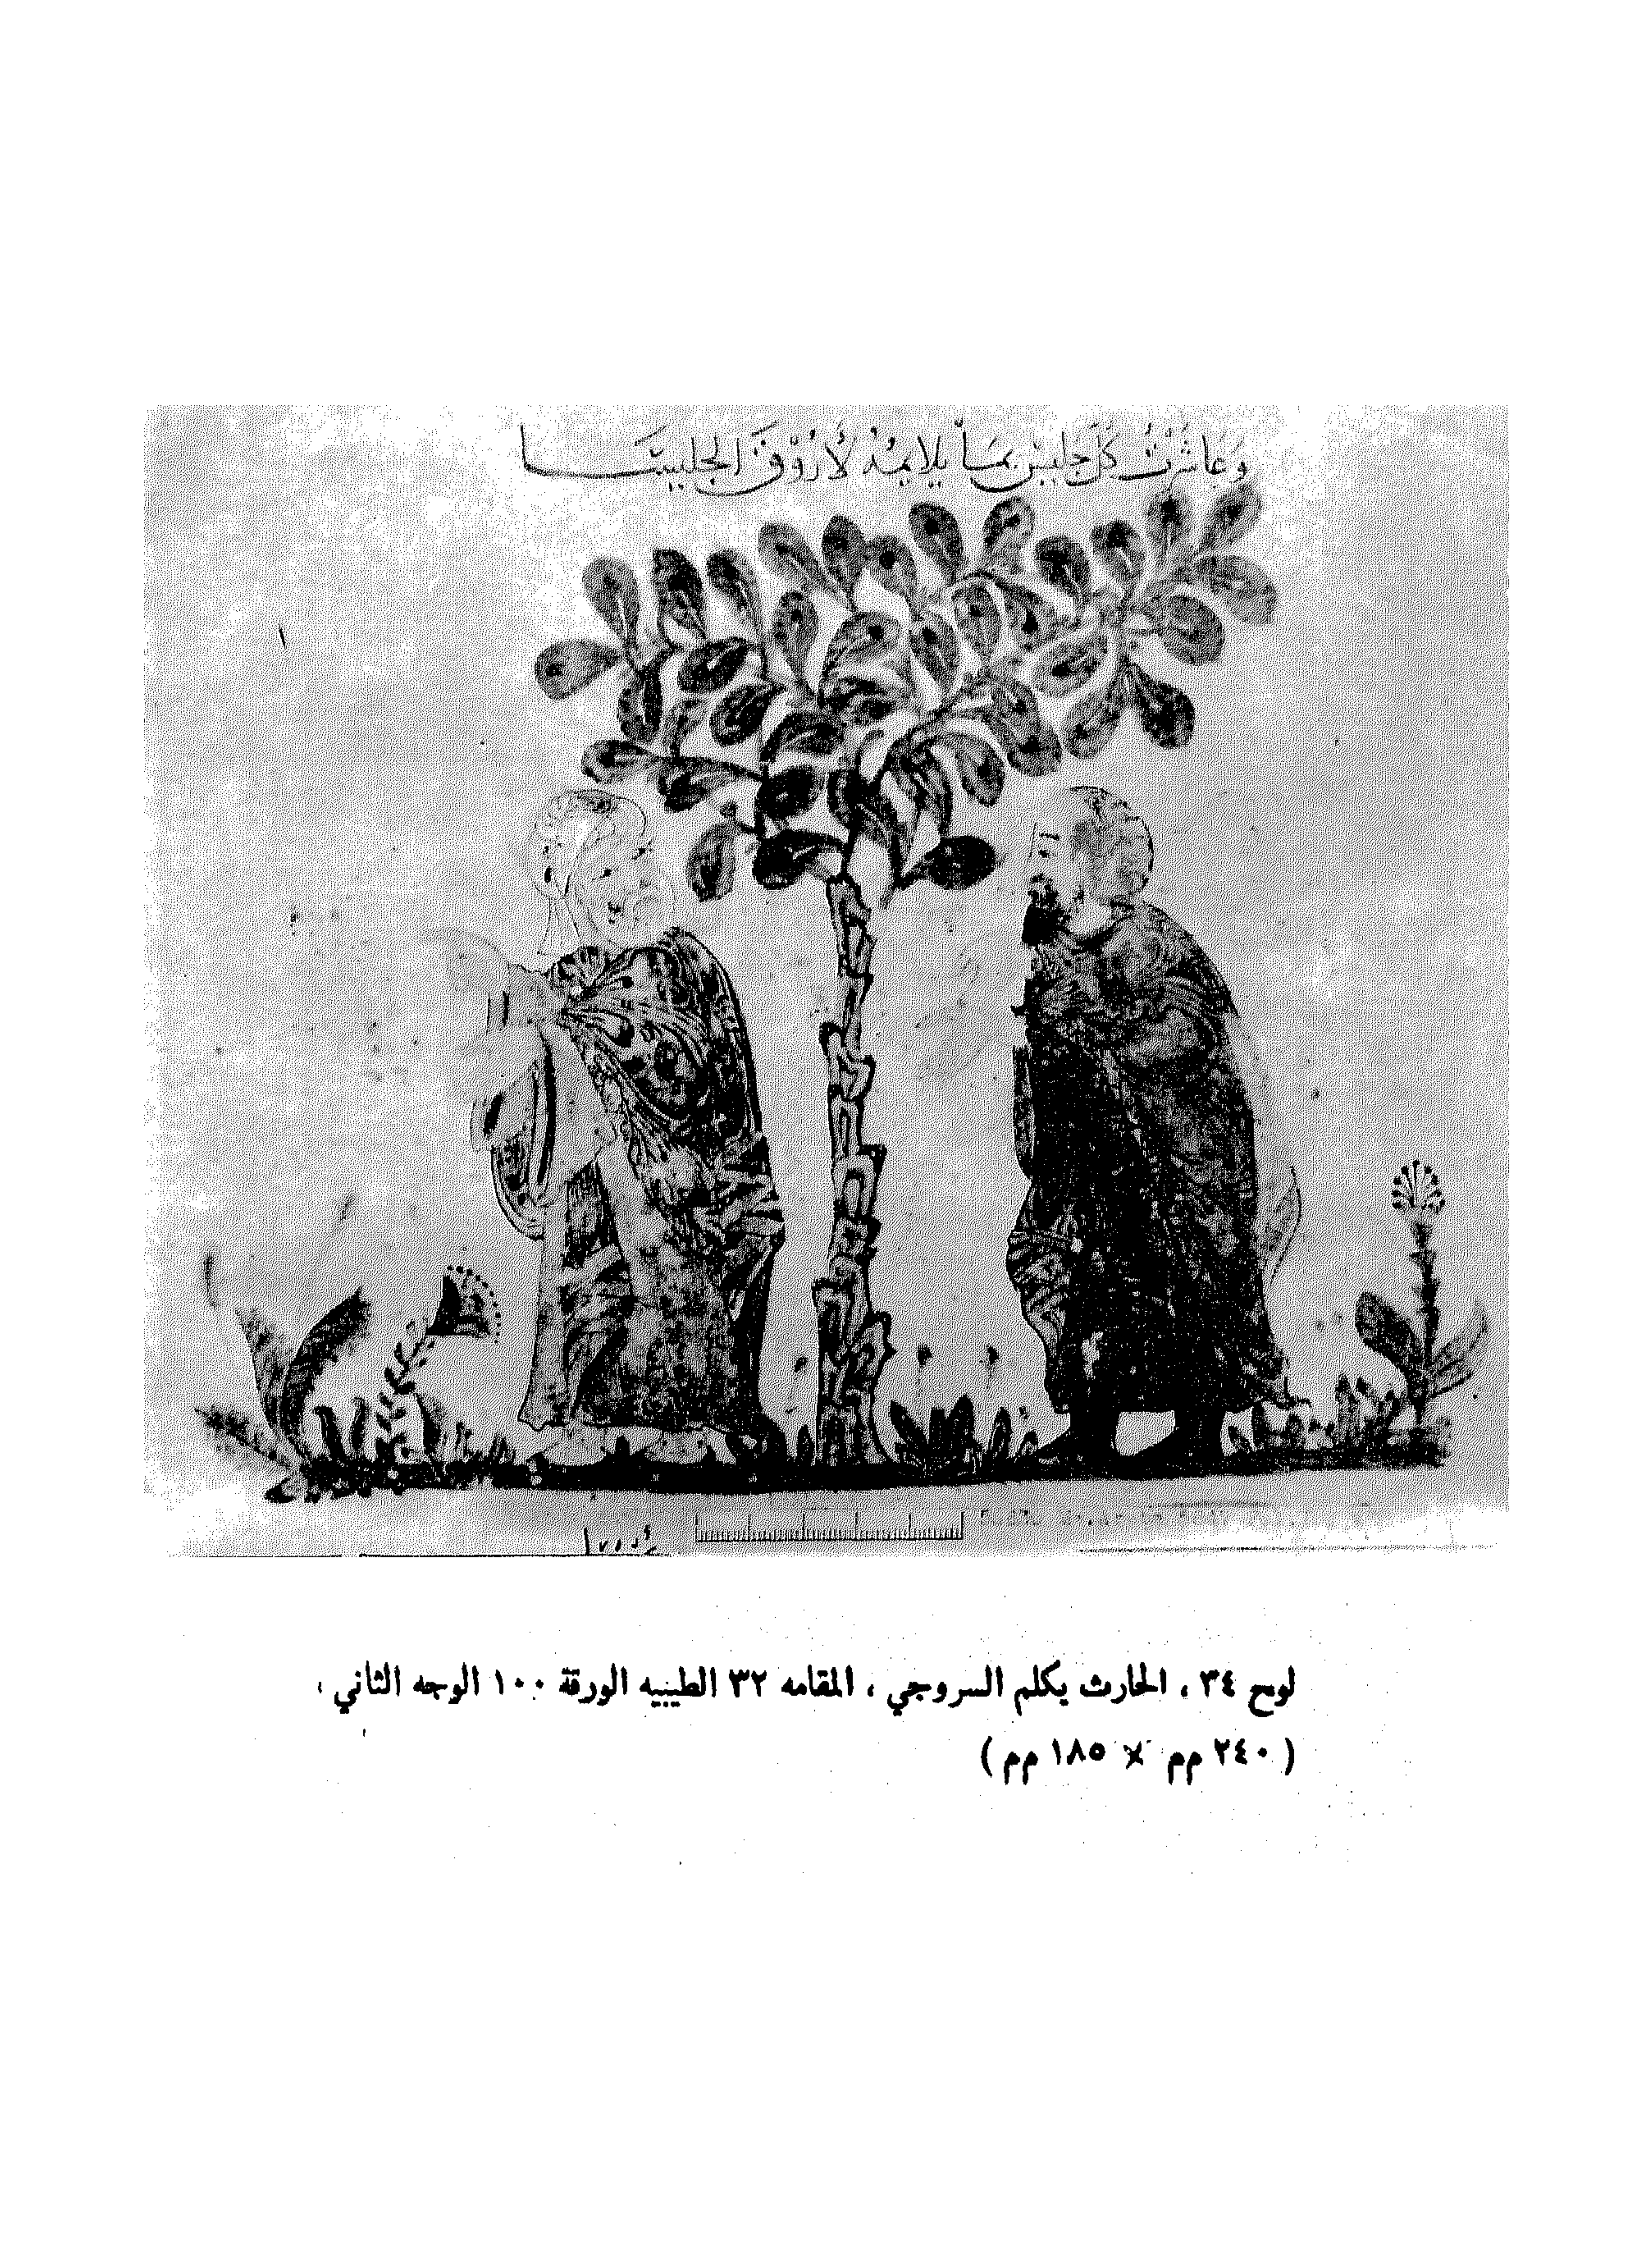 وَعَاشَرْتُ كُلَّ جَلِيسٍ بِمَا يُلَايِمُهُ لَأَرُوقَ الجَلِيسَا
لوح ٣٤ ، الحارث يكلم السروجي ، المقامه ٣٢ الطيبيه الورقة ١٠٠ الوجه الثاني ،
( ٢٤٠ مم × ١٨٥ مم )